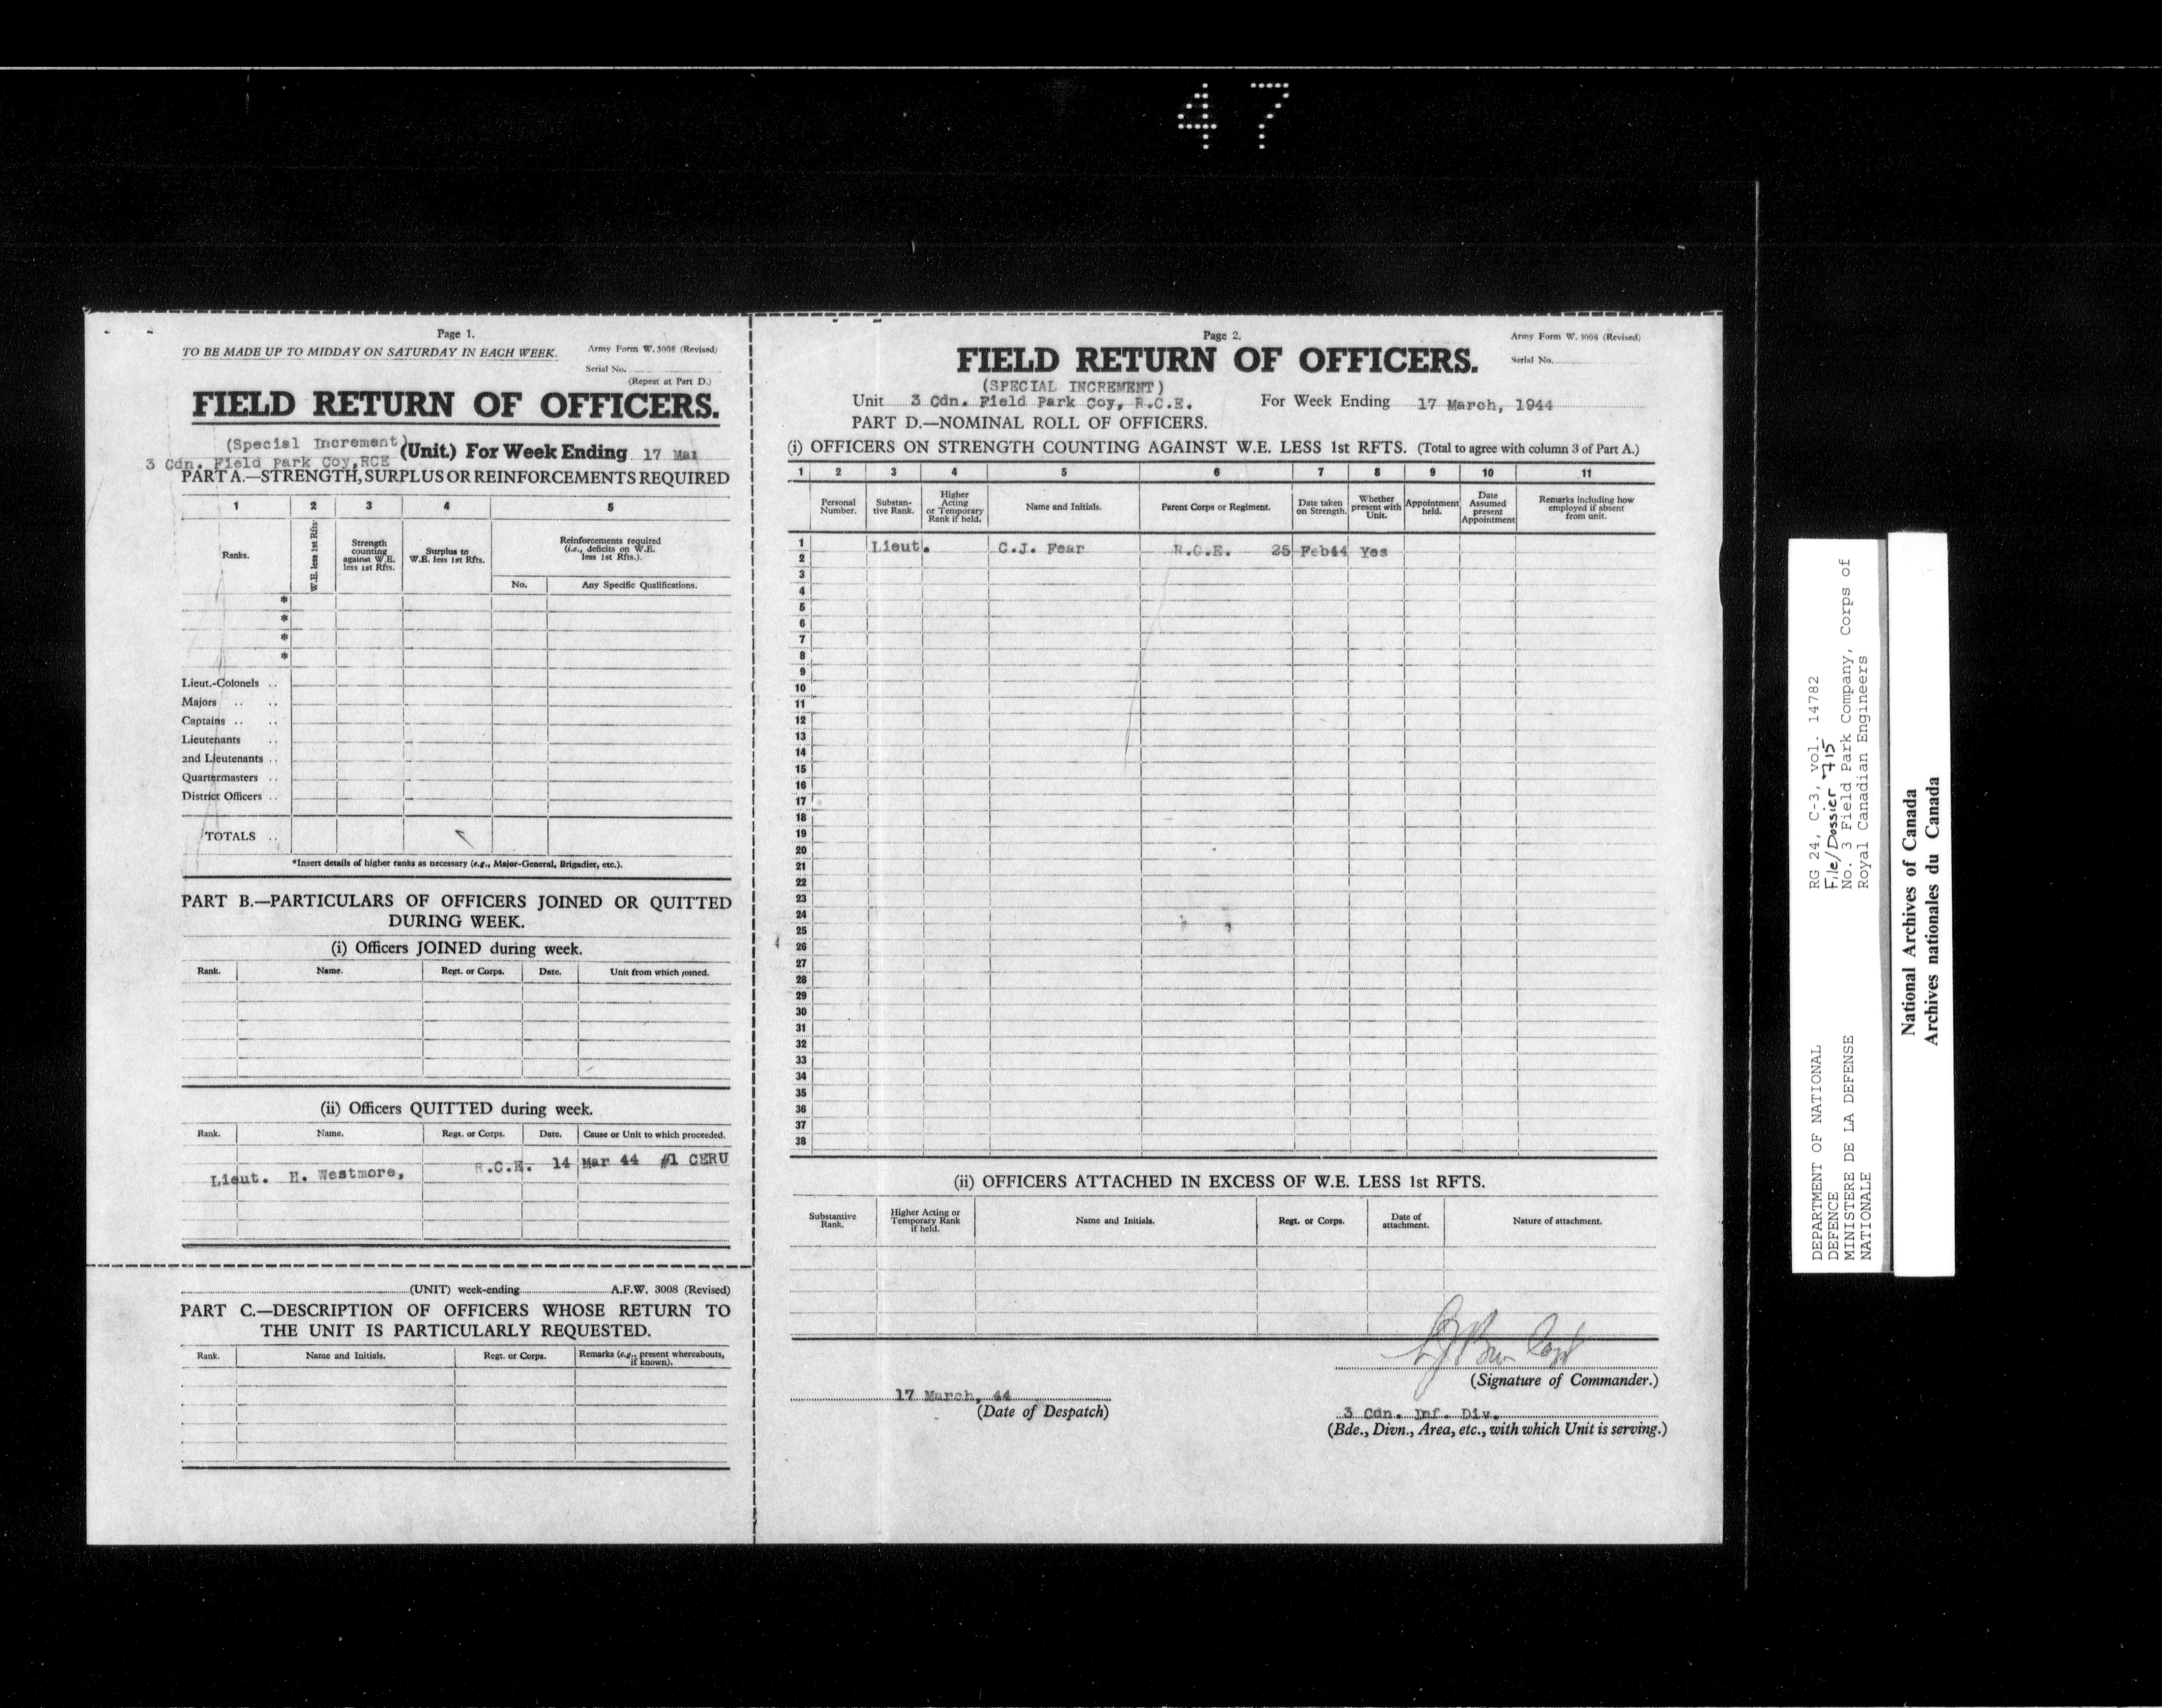 47
Page 1.
TO BE MADE UP TO MIDDAY ON SATURDAY IN EACH WEEK.
Army Form W. 3008 (Revised)
Serial No.
(Repeat at Part D.)
FIELD RETURN OF OFFICERS.
(Special Increment)
3 Cdn. Field Park Coy,RCE (Unit.) For Week Ending 17 Mar
PART A.—STRENGTH, SURPLUS OR REINFORCEMENTS REQUIRED
1 2 3 4 5
Ranks.
W.E. less 1st Rfts.
Strength
counting
against W.E.
less 1st Rfts.
Surplus to
W.E. less 1st Rfts.
Reinforcements required
(i.e., deficits on W.E.
less 1st Rfts.).
No. Any Specific Qualifications.
*
*
*
*
Lieut.-Colonels ..
Majors .. ..
Captains .. ..
Lieutenants ..
2nd Lieutenants ..
Quartermasters ..
District Officers ..
TOTALS ..
*Insert details of higher ranks as necessary (e.g., Major-General, Brigadier, etc.).
PART B.—PARTICULARS OF OFFICERS JOINED OR QUITTED
DURING WEEK.
(i) Officers JOINED during week.
Rank. Name. Regt. or Corps. Date. Unit from which joined.
(ii) Officers QUITTED during week.
Rank. Name. Regt. or Corps. Date. Cause or Unit to which proceeded.
Lieut. H. Westmore, R.C.E. 14 Mar 44 #1 CERU
(UNIT) week-ending A.F.W. 3008 (Revised)
PART C.—DESCRIPTION OF OFFICERS WHOSE RETURN TO
THE UNIT IS PARTICULARLY REQUESTED.
Rank. Name and Initials. Regt. or Corps. Remarks (e.g., present whereabouts,
if known).
Page 2.
Army Form W. 3008 (Revised)
FIELD RETURN OF OFFICERS.
Serial No.
(SPECIAL INCREMENT)
Unit 3 Cdn. Field Park Coy, R.C.E. For Week Ending 17 March, 1944
PART D.—NOMINAL ROLL OF OFFICERS.
(i) OFFICERS ON STRENGTH COUNTING AGAINST W.E. LESS 1st RFTS. (Total to agree with column 3 of Part A.)
1 2 3 4 5 6 7 8 9 10 11
Personal
Number.
Substan-
tive Rank.
Higher
Acting
or Temporary
Rank if held.
Name and Initials.
Parent Corps or Regiment.
Date taken
on Strength.
Whether
present with
Unit.
Appointment
held.
Date
Assumed
present
Appointment
Remarks including how
employed if absent
from unit.
1 Lieut. C.J. Fear R.C.E. 25 Feb44 Yes
2
3
4
5
6
7
8
9
10
11
12
13
14
15
16
17
18
19
20
21
22
23
24
25
26
27
28
29
30
31
32
33
34
35
36
37
38
(ii) OFFICERS ATTACHED IN EXCESS OF W.E. LESS 1st RFTS.
Substantive
Rank.
Higher Acting or
Temporary Rank
if held.
Name and Initials.
Regt. or Corps.
Date of
attachment.
Nature of attachment.
(Signature of Commander.)
17 March, 44
(Date of Despatch)
3 Cdn. Inf. Div.
(Bde., Divn., Area, etc., with which Unit is serving.)
DEPARTMENT OF NATIONAL
DEFENCE
MINISTERE DE LA DEFENSE
NATIONALE
RG 24, C-3, vol. 14782
File/Dossier 715
No. 3 Field Park Company, Corps of
Royal Canadian Engineers
National Archives of Canada
Archives nationales du Canada